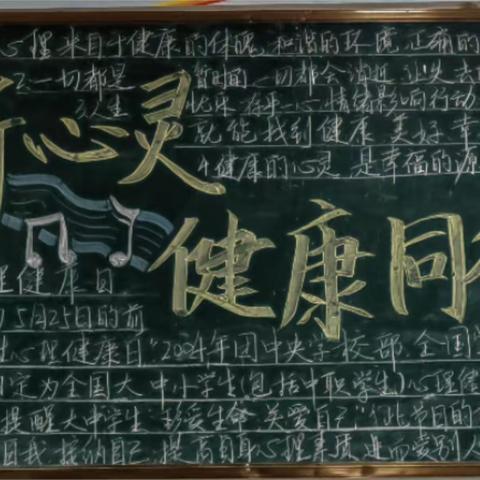 心理来自于健康的体魄,和谐的环境,正确的
一切都是 暂时的,一切都会消逝,让失去
人生 快乐在平心,情绪影响行动
就能找到健康 美好 幸
个健康的心灵 是幸福的源
心灵
健康同
理健康日
5月25日的前
生心理健康日"2004年团中央学校部、全国
定为全国大中小学生(包括中职学生)心理健
提醒大中学生"珍爱生命、关爱自己"、
自我,接纳自己,提高自身心理素质,进而爱别人